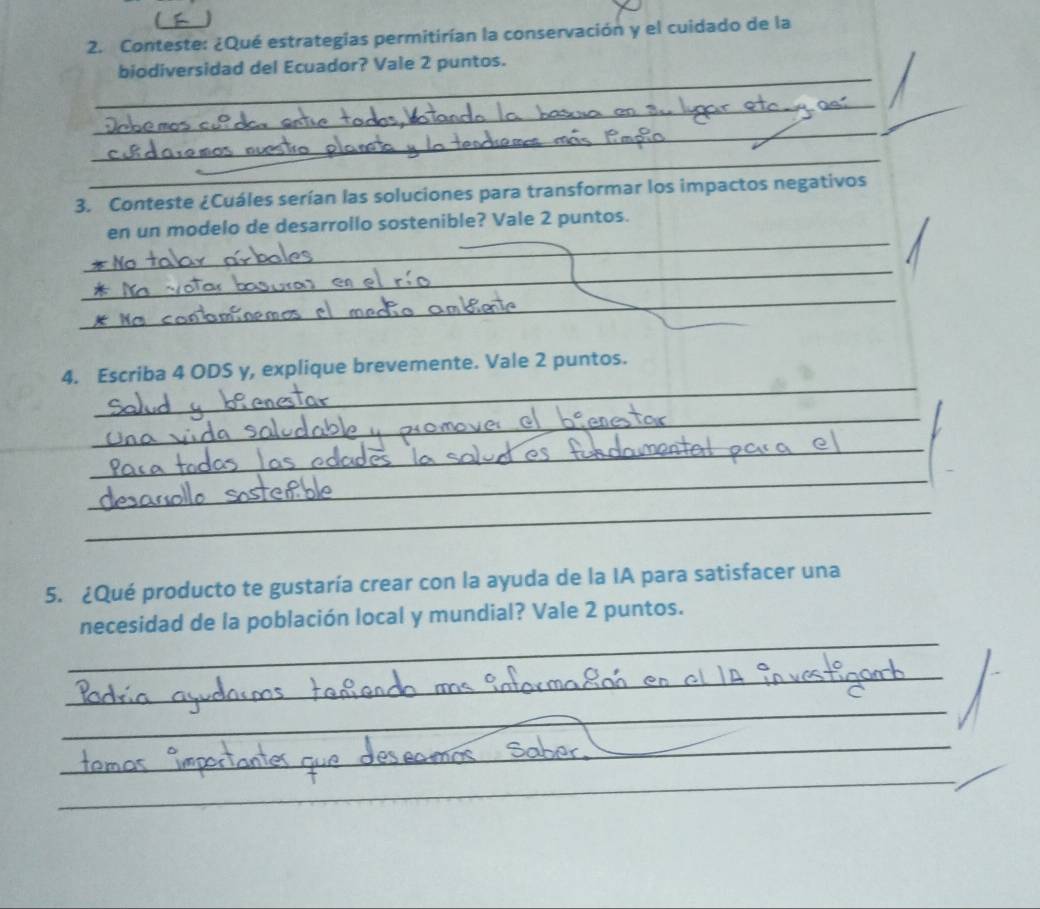 ( F )
2. Conteste: ¿Qué estrategias permitirían la conservación y el cuidado de la
biodiversidad del Ecuador? Vale 2 puntos.
Debemos cuidar entre todos, Votando la basura en su lugar etc. y asi
cuidaremos nuestro planeta y lo tendremos más limpio
3. Conteste ¿Cuáles serían las soluciones para transformar los impactos negativos
en un modelo de desarrollo sostenible? Vale 2 puntos.
* No talar árboles
* No votar basuras en el río
* No contaminemos el medio ambiente
4. Escriba 4 ODS y, explique brevemente. Vale 2 puntos.
Salud y bienestar
Una vida saludable y promover el bienestar
Para todas las edades la salud es fundamental para el
desarrollo sostenible
5. ¿Qué producto te gustaría crear con la ayuda de la IA para satisfacer una
necesidad de la población local y mundial? Vale 2 puntos.
Podria ayudarnos teniendo mas información en el IA investigando
temas importantes que deseamos saber.